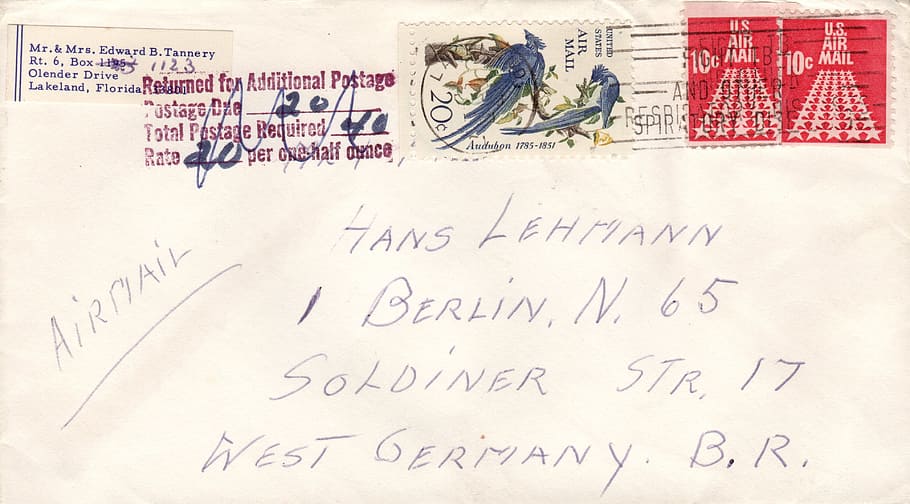 Mr. & Mrs. Edward B. Tannery
Rt. 6, Box 1123
Olender Drive
Lakeland, Florida
Returned for Additional Postage
Postage Due 20
Total Postage Required 40
Rate 20 per one-half ounce
UNITED STATES
AIR MAIL
20c
Audubon 1785-1851
U.S. AIR MAIL
10c
U.S. AIR MAIL
10c
AND OTHER
RESPIRATORY DIS
HANS LEHMANN
1 BERLIN, N. 65
SOLDINER STR. 17
WEST GERMANY. B.R.
AIRMAIL